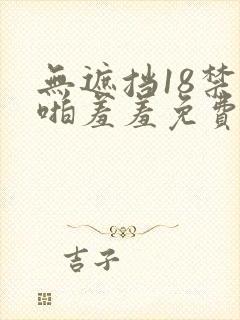 無遮挡18禁
啪羞羞免費
吉子